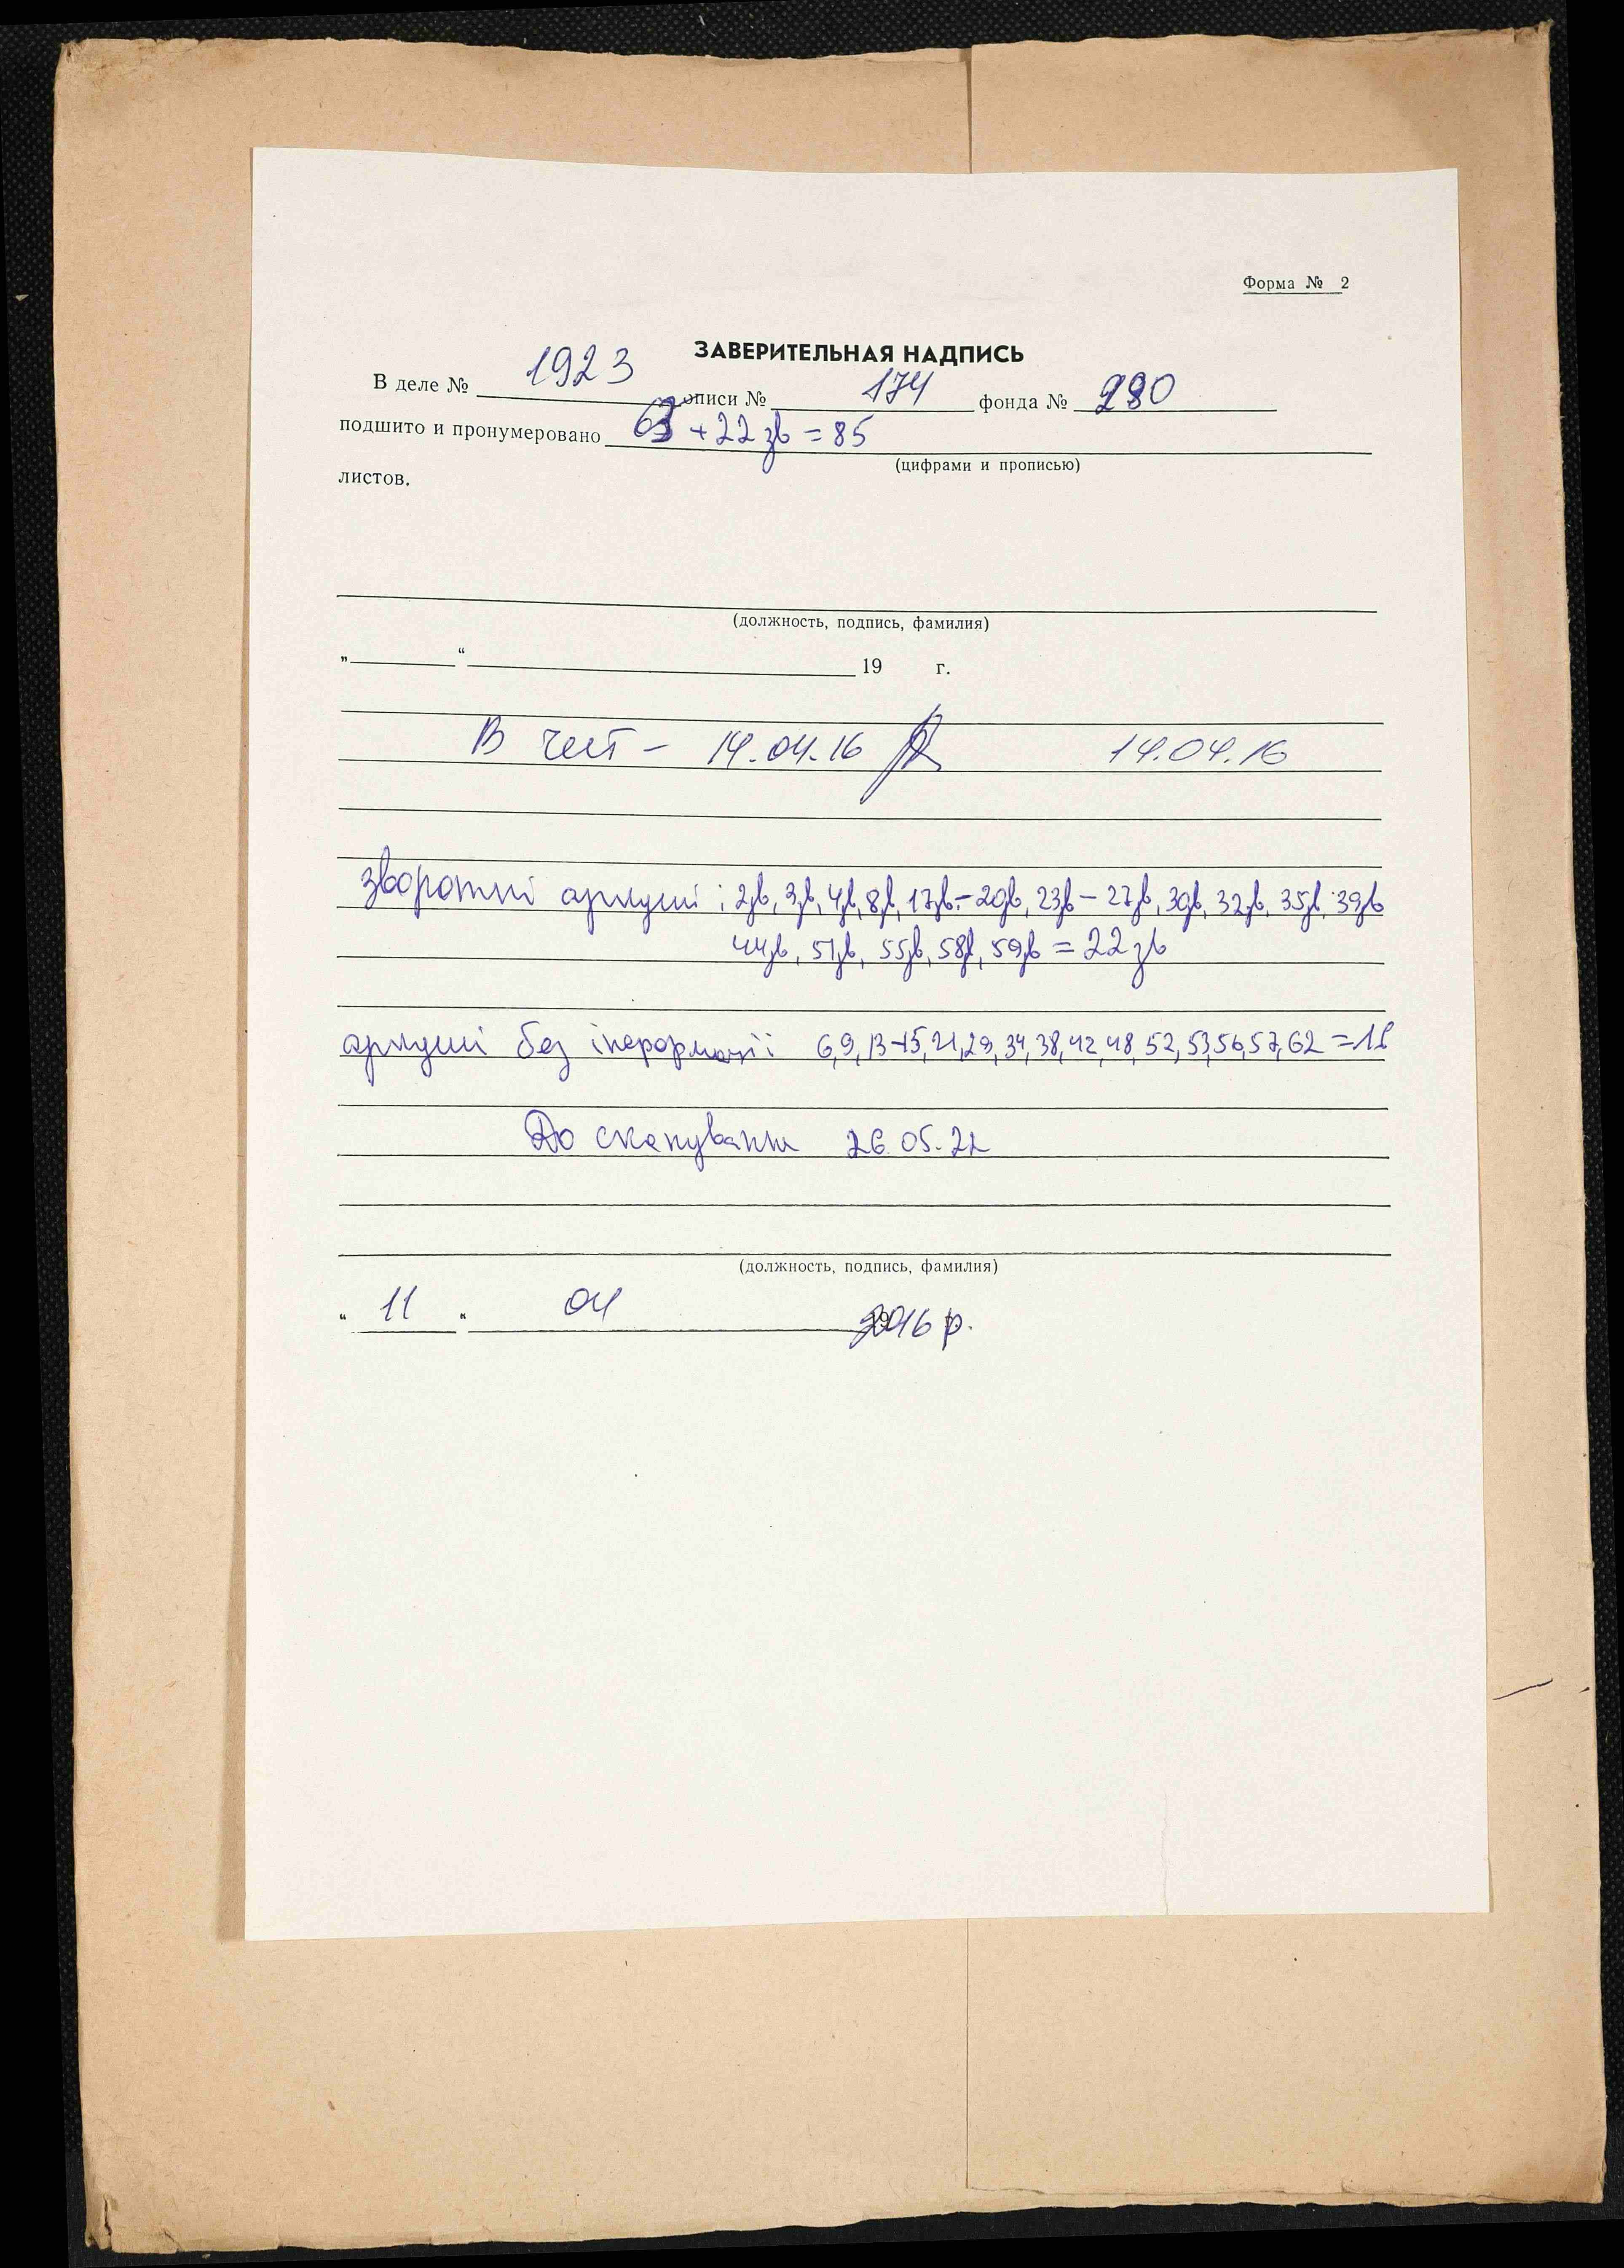 Форма № 2
ЗАВЕРИТЕЛЬНАЯ НАДПИСЬ
В деле № 1923 описи № 174 фонда № 280
подшито и пронумеровано 63 + 22 зв = 85
(цифрами и прописью)
листов.
(должность, подпись, фамилия)
„ “ 19 г.
В – 14.04.16 14.04.16
зворотні аркуші : 2зв, 3зв, 4зв, 8зв, 17зв – 20зв, 23зв – 27зв, 30зв, 32зв, 35зв, 39зв
44зв, 51зв, 55зв, 58зв, 59зв = 22 зв
аркуші без інформації 6,9,13-15,21,29,34,38,42,48,52,53,56,57,62 =16
До сканування 26.05.22
(должность, подпись, фамилия)
“ 11 “ 04 2016 р.